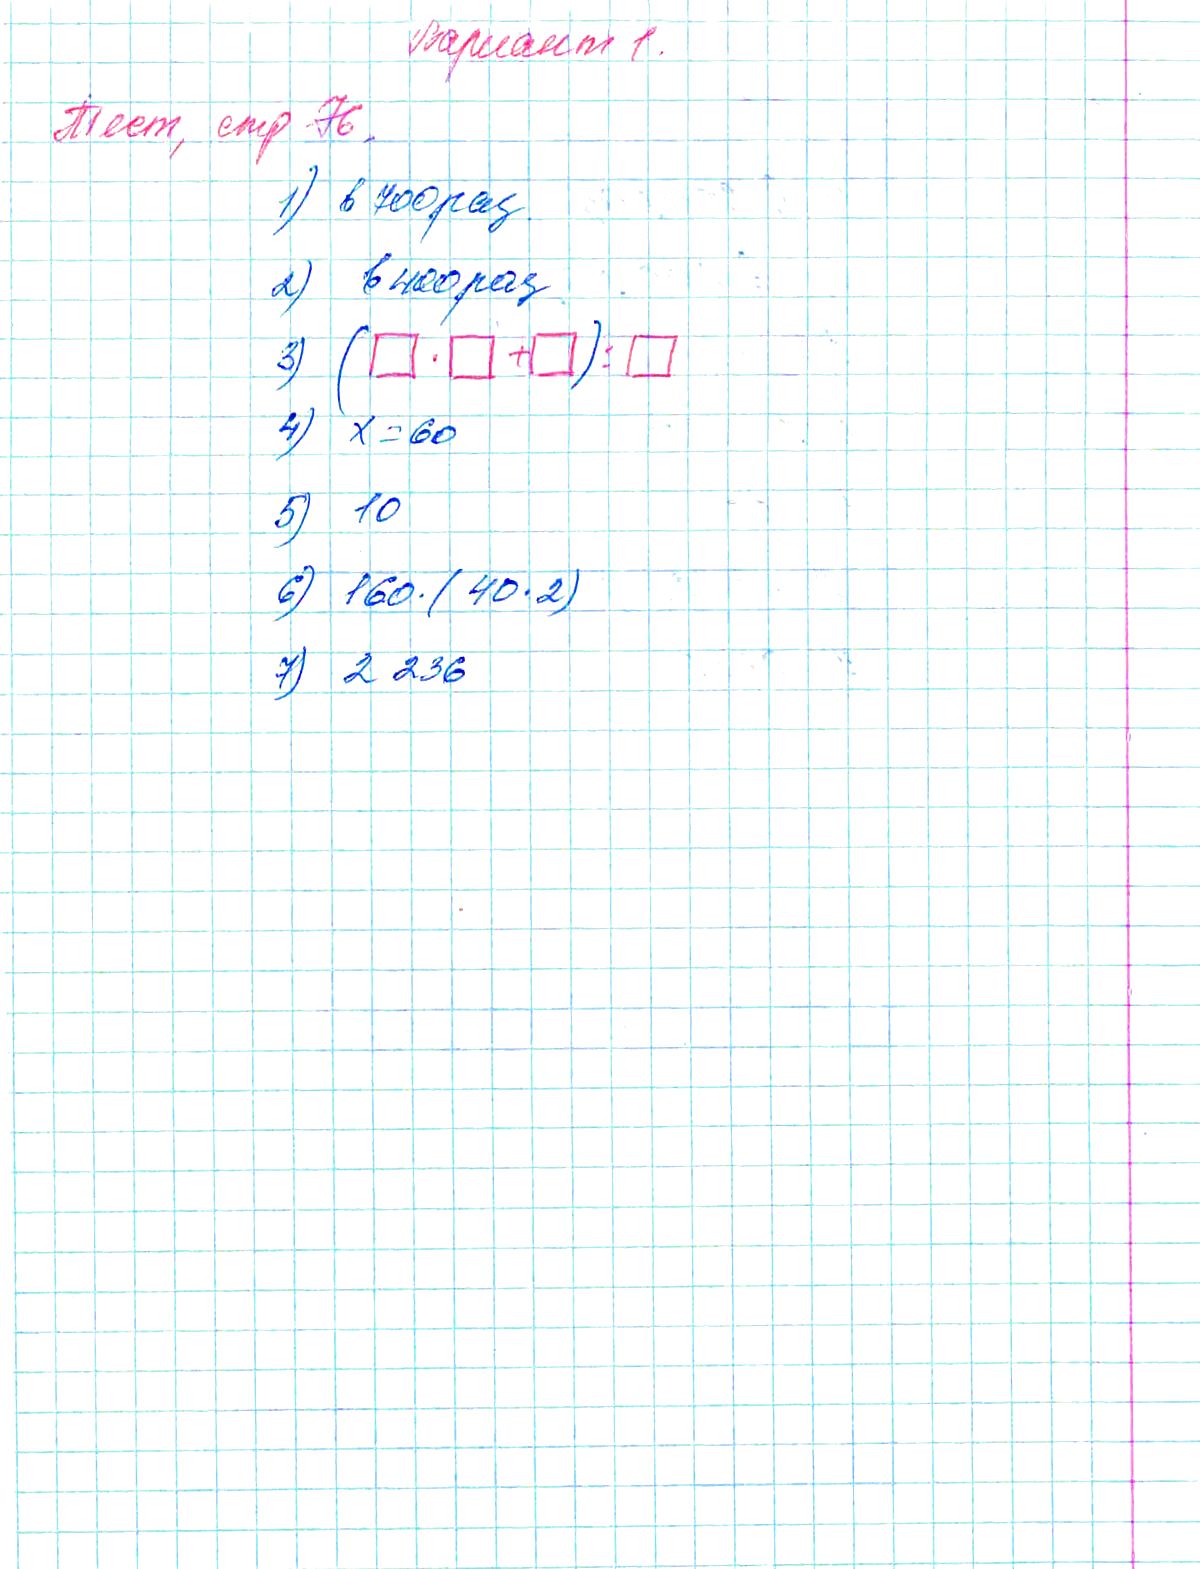 Вариант 1.
Тест, стр 76.
1) в 700 раз
2) в 400 раз
3) (□ · □ + □) : □
4) x = 60
5) 10
6) 160 · (40 · 2)
7) 2 236